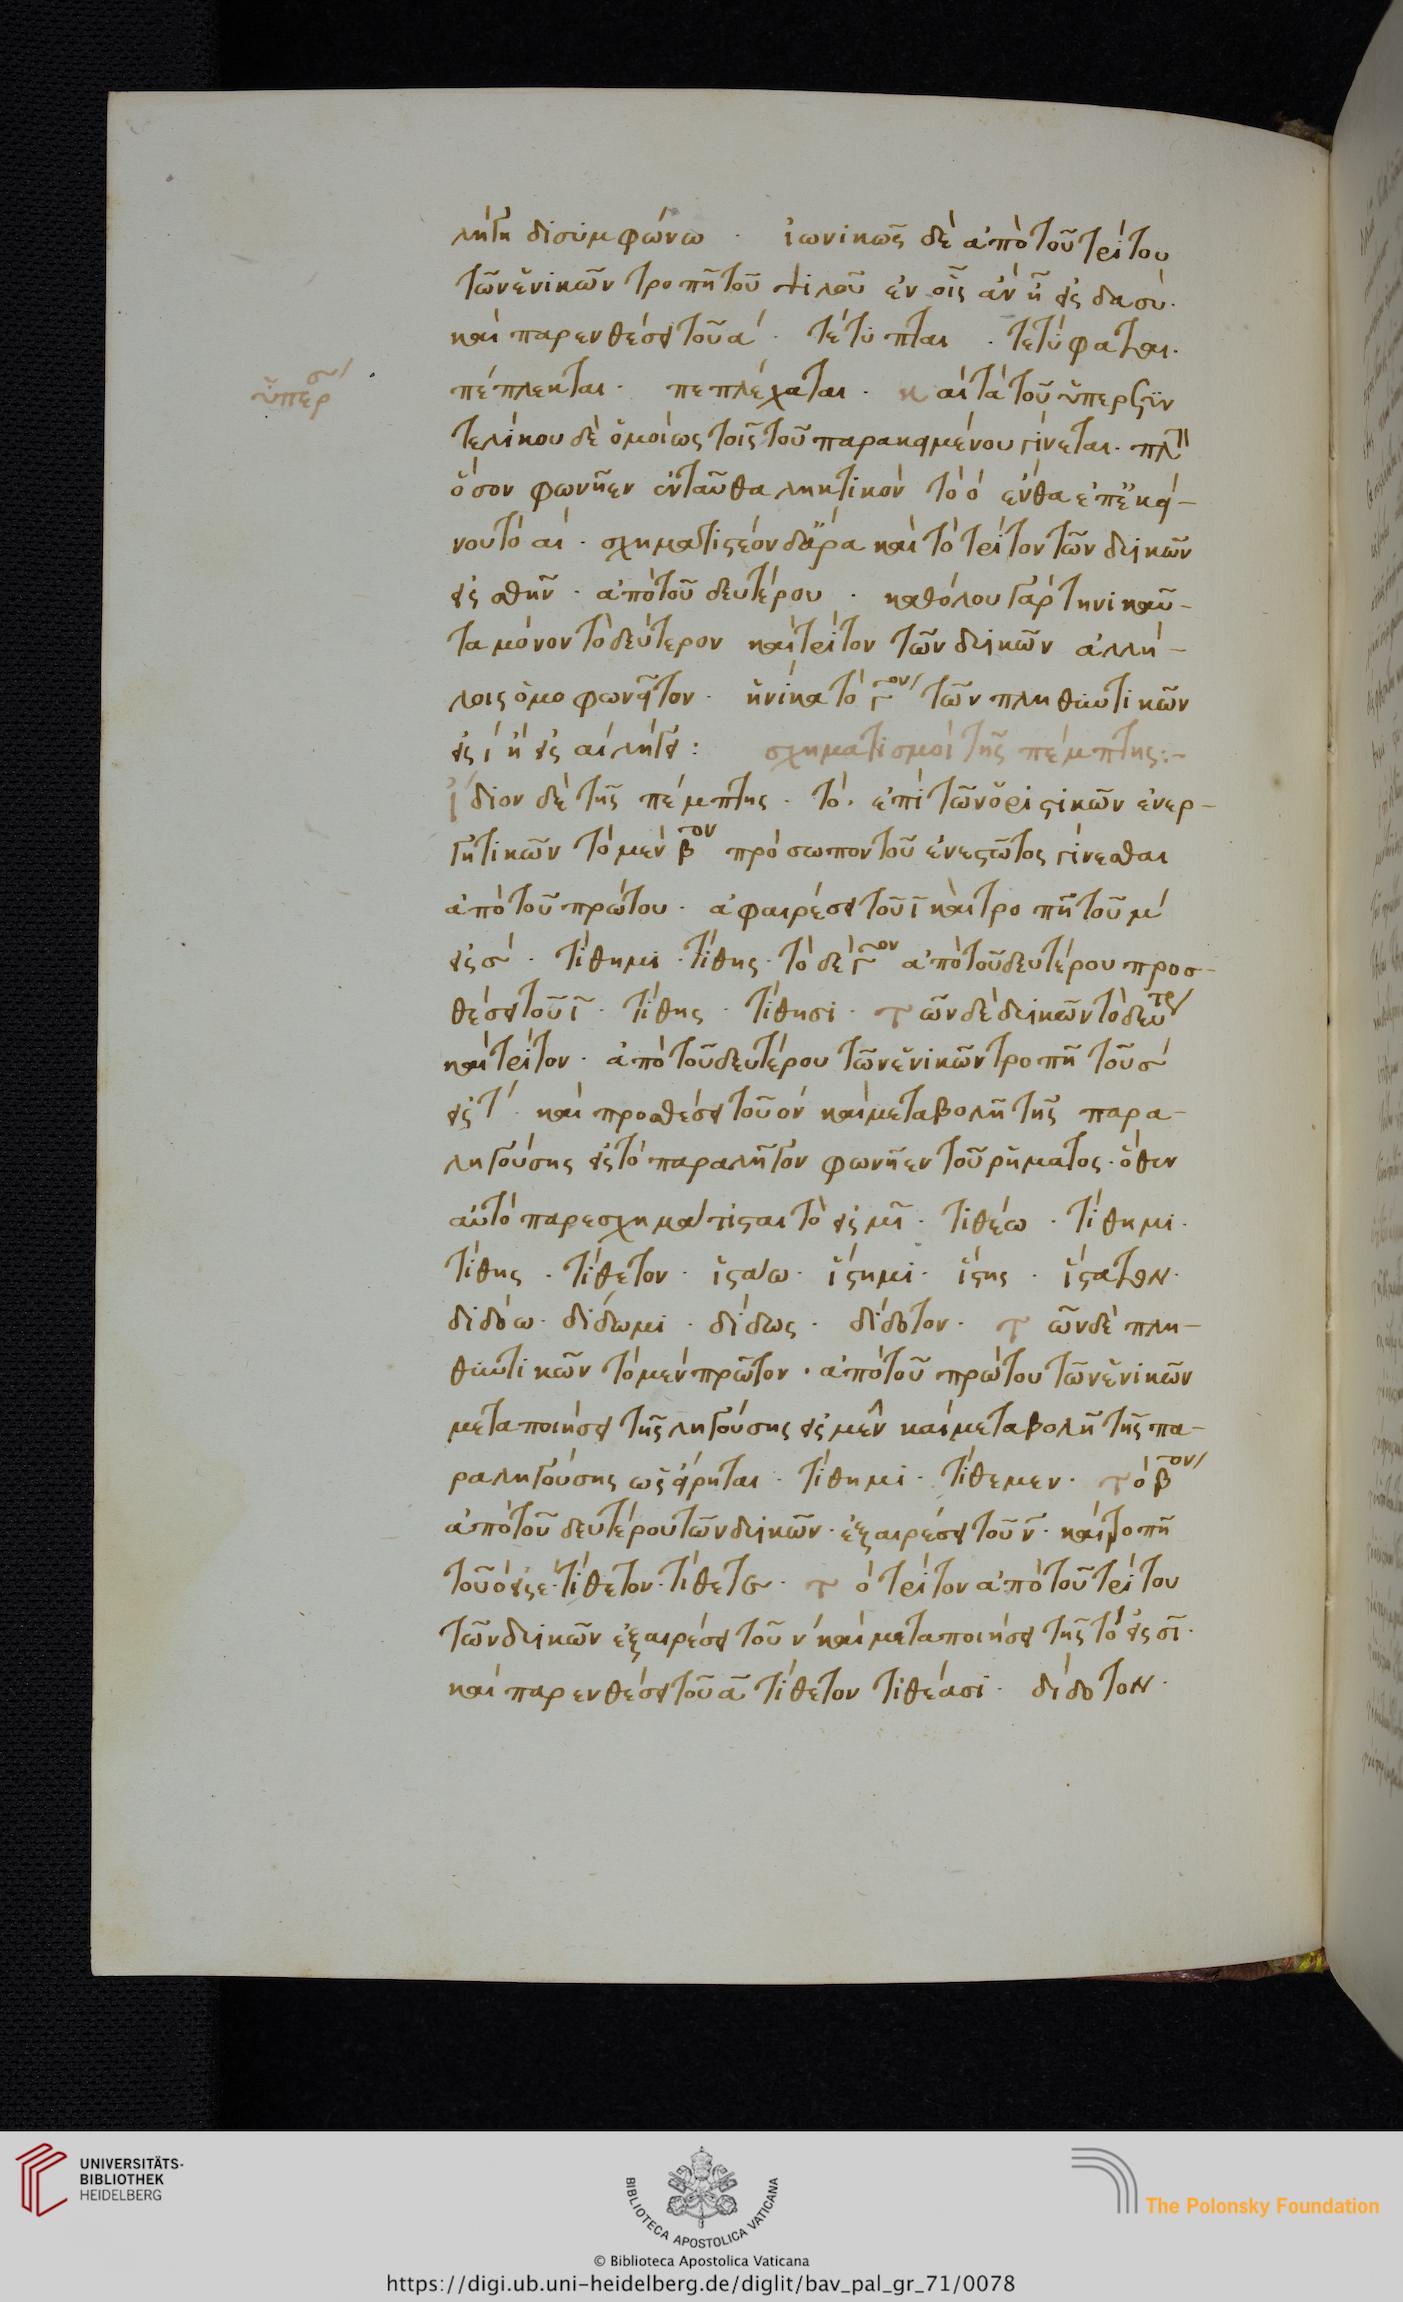 λήγη δι συμφώνω · ἰωνικῶς δὲ ἀπὸ τοῦ τρίτου
τῶν ἑνικῶν τροπῇ τοῦ ψιλοῦ ἐν οἷς ἀν ἦ εἰς δασύ·
καὶ παρενθέσει τοῦ α · τέτυπται · τετύφαται·
πέπλεκται · πεπλέχαται · καὶ τὰ τοῦ ὑπερσυν
ὑπερσ
τελίκου δὲ ὁμοίως τοῖς τοῦ παρακειμένου γίνεται · πλὴν
ὅσον φωνῆεν ἐνταῦθα ληκτικὸν τὸ ο ἔνθα ἐπ' ἐκεί-
νου τὸ αι · σχηματιστέον δ' ἄρα καὶ τὸ τρίτον τῶν δυικῶν
εἰς σθην · ἀπὸ τοῦ δευτέρου · καθόλου γὰρ τηνικαῦ-
τα μόνον τὸ δεύτερον καὶ τρίτον τῶν δυικῶν ἀλλή-
λοις ὁμοφωνεῖτον · ἡνίκα τὸ γον τῶν πληθυντικῶν
εἰς ι ἢ εἰς αι λήγει : σχηματισμοὶ τῆς πέμπτης :-
ἴδιον δὲ τῆς πέμπτης · τὸ · ἐπὶ τῶν ὁριστικῶν ἐνερ-
γητικῶν τὸ μὲν βον πρόσωπον τοῦ ἐνεστῶτος γίνεσθαι
ἀπὸ τοῦ πρώτου · ἀφαιρέσει τοῦ ι καὶ τροπῇ τοῦ μ
εἰς σ · τίθημι · τίθης · τὸ δὲ γον ἀπὸ τοῦ δευτέρου προσ-
θέσει τοῦ ι · τίθης · τίθησι · τῶν δὲ δυικῶν τὸ δεύτε
καὶ τρίτον · ἀπὸ τοῦ δευτέρου τῶν ἑνικῶν τροπῇ τοῦ σ
εἰς τ · καὶ προσθέσει τοῦ ον καὶ μεταβολῇ τῆς παρα-
ληγούσης εἰς τὸ παραλῆγον φωνῆεν τοῦ ῥήματος · ὅθεν
αὐτὸ παρεσχημάτισται τὸ εἰς μι · τιθέω · τίθημι ·
τίθης · τίθετον · ἱστάω · ἵστημι · ἵστης · ἵστατον ·
διδόω · δίδωμι · δίδως · δίδοτον · τῶν δὲ πλη-
θυντικῶν τὸ μὲν πρῶτον · ἀπὸ τοῦ πρώτου τῶν ἑνικῶν
μεταποιήσει τῆς ληγούσης εἰς μεν καὶ μεταβολῇ τῆς πα-
ραληγούσης ὡς εἴρηται · τίθημι · τίθεμεν · τὸ βον
ἀπὸ τοῦ δευτέρου τῶν δυικῶν · ἐξαιρέσει τοῦ ν · καὶ τροπῇ
τοῦ ο εἰς ε · τίθετον · τίθετε · τὸ τρίτον ἀπὸ τοῦ τρίτου
τῶν δυικῶν ἐξαιρέσει τοῦ ν καὶ μεταποιήσει τῆς το εἰς σι ·
καὶ παρενθέσει τοῦ α τίθετον τιθέασι · δίδοτον ·
UNIVERSITÄTS-
BIBLIOTHEK
HEIDELBERG
BIBLIOTECA APOSTOLICA VATICANA
The Polonsky Foundation
© Biblioteca Apostolica Vaticana
https://digi.ub.uni-heidelberg.de/diglit/bav_pal_gr_71/0078